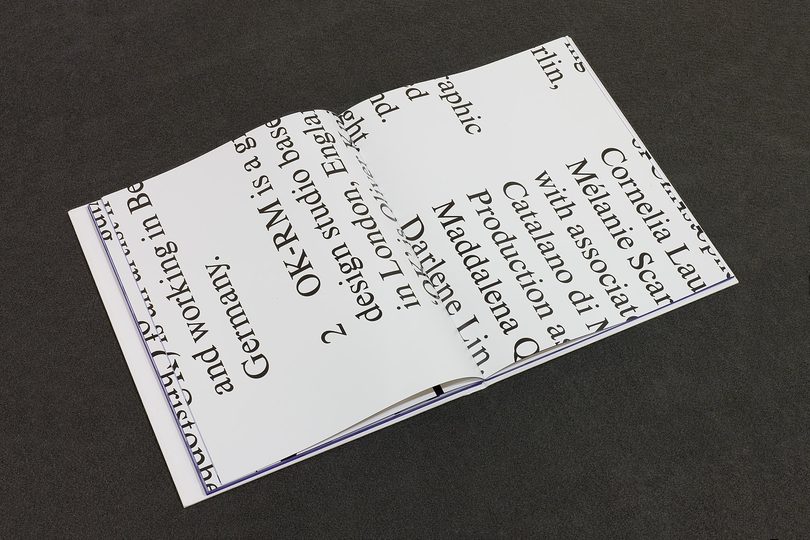 and working in Be
Germany.
2 OK-RM is a g
design studio base
in London, Engla
rlin,
raphic
d
nd.
Cornelia Lau
Mélanie Scar
with associat
Catalano di
Production a
Maddalena Q
Darlene Lin,